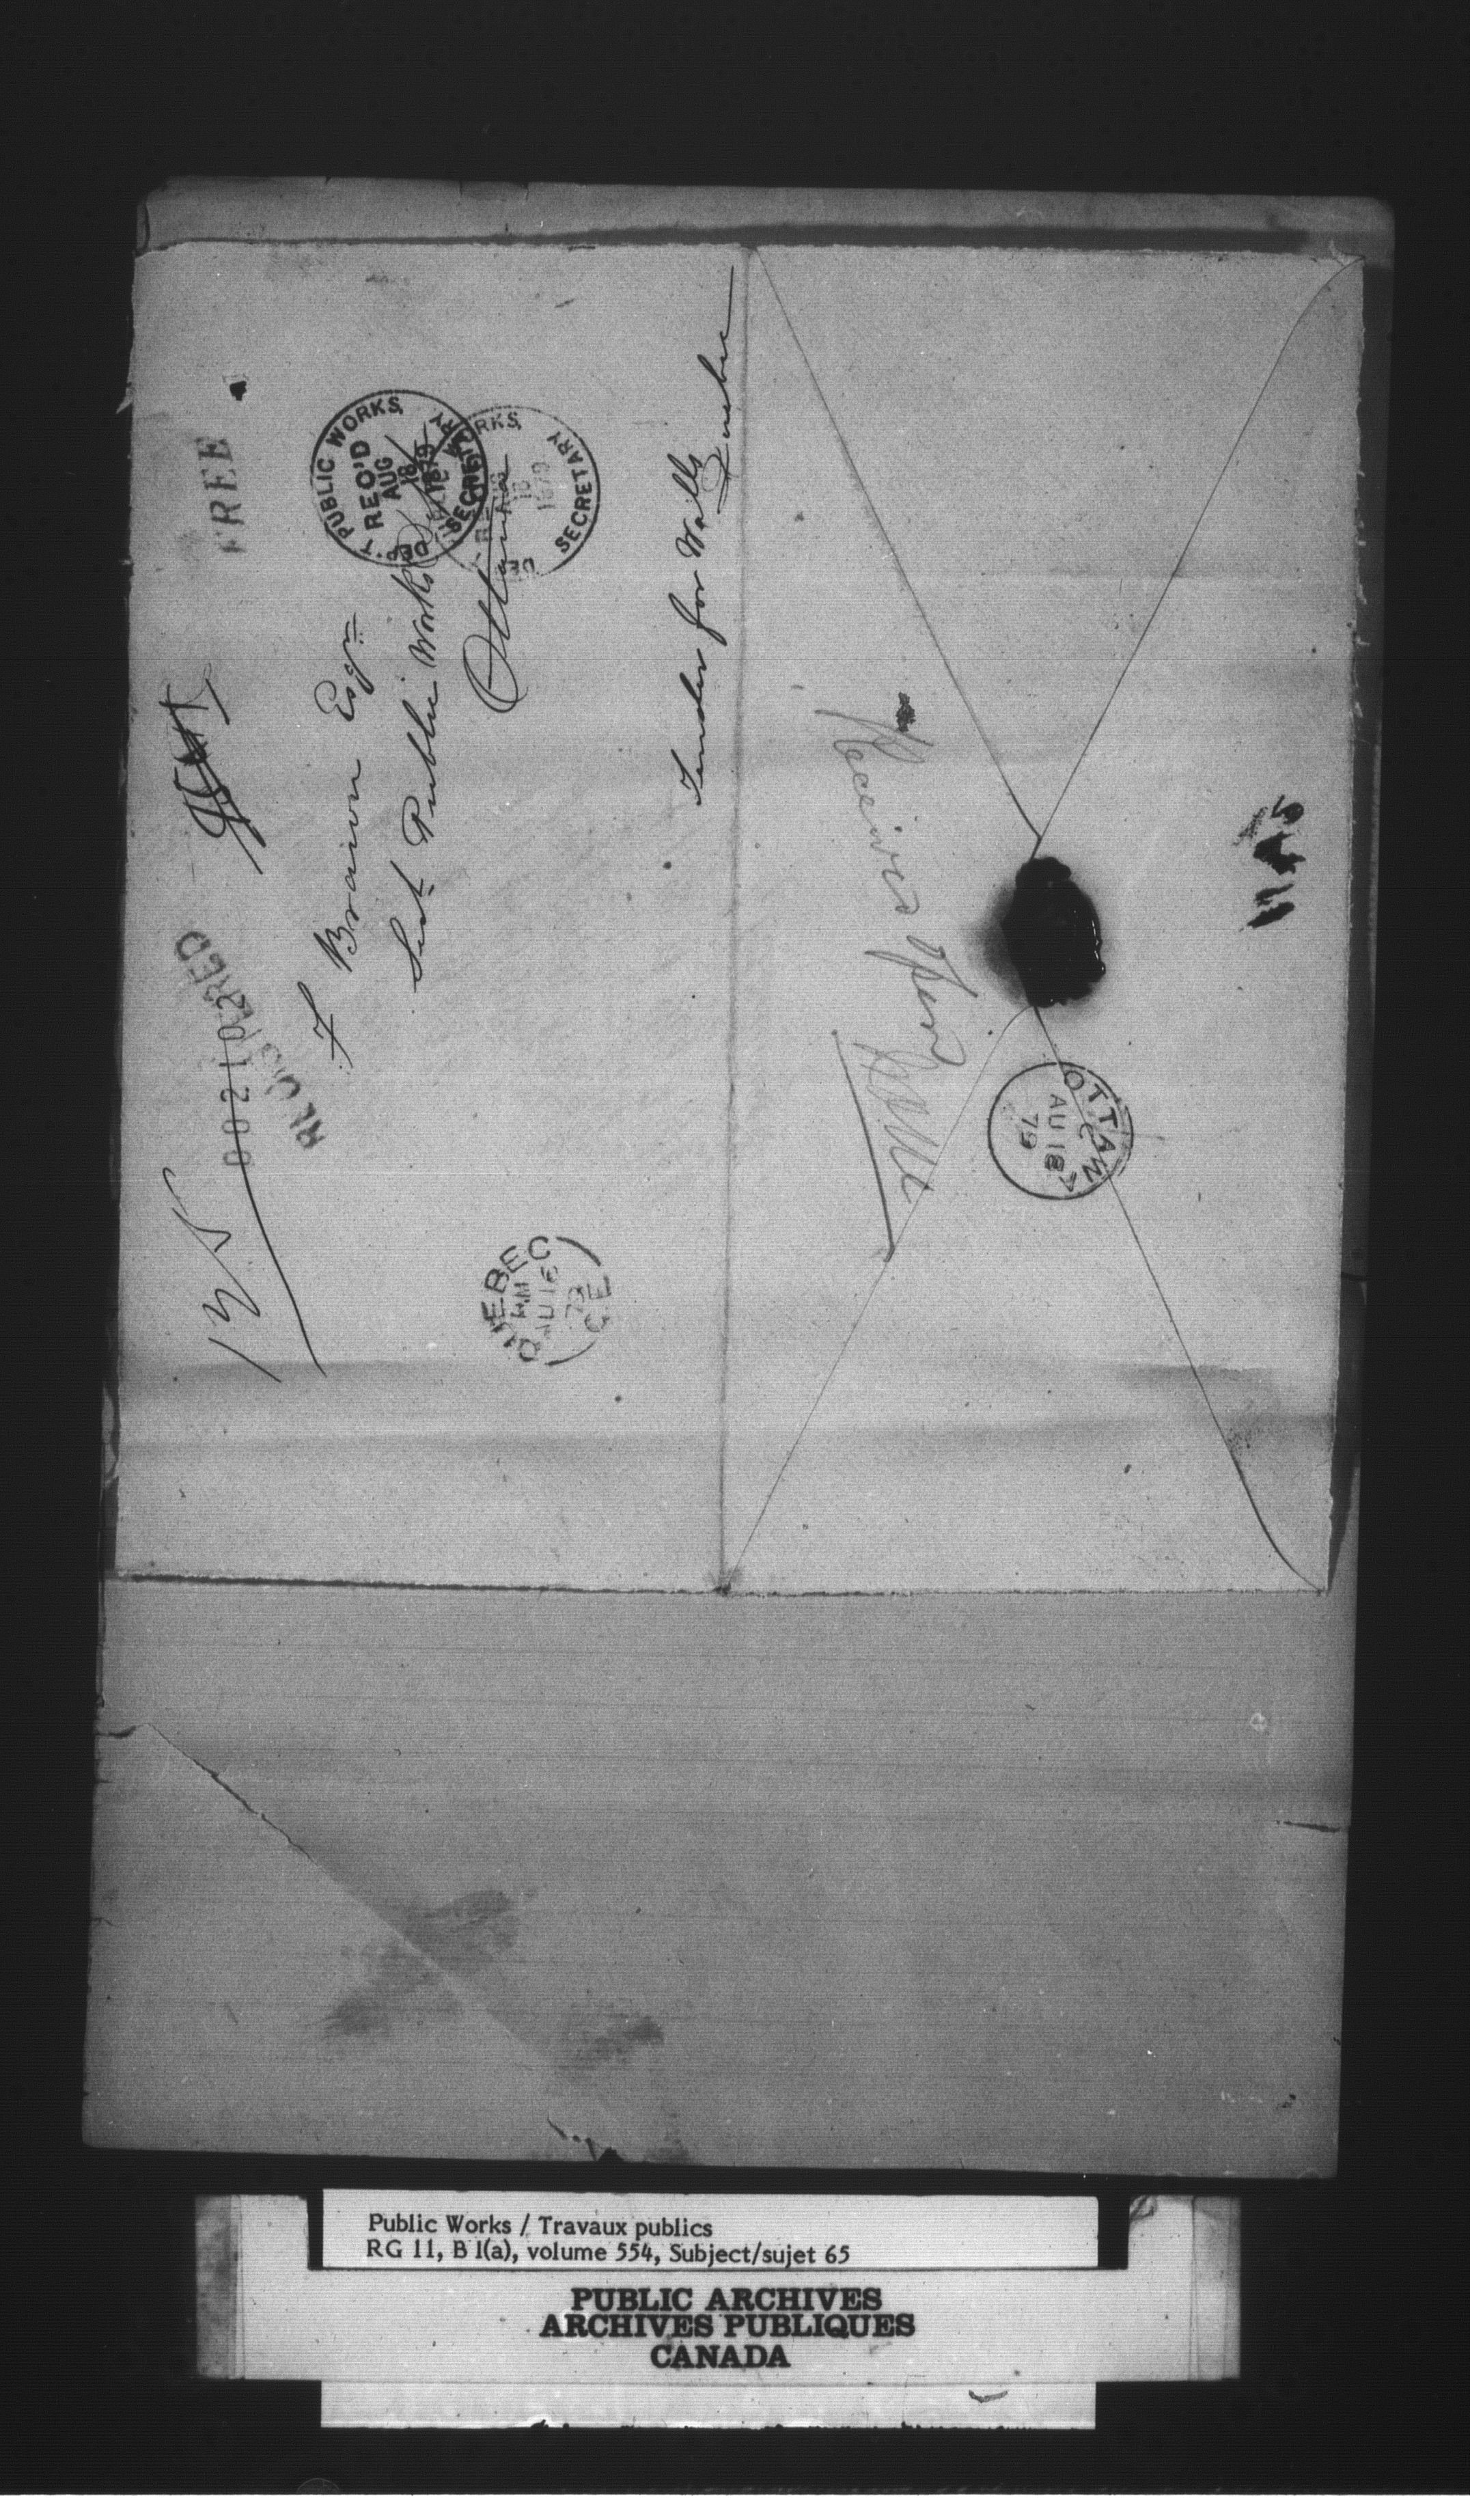 FREE
REGISTERED
002102
F Braun Esqr
Sect Public Works
Ottawa
DEPT PUBLIC WORKS
REC'D
AUG
18
1879
SECRETARY
DEPT WORKS
18
1879
SECRETARY
QUEBEC
AU 16
79
Tender for Walls
Quebec
Received Open
OTTAWA
AU 18
79
Public Works / Travaux publics
RG 11, B 1(a), volume 554, Subject/sujet 65
PUBLIC ARCHIVES
ARCHIVES PUBLIQUES
CANADA